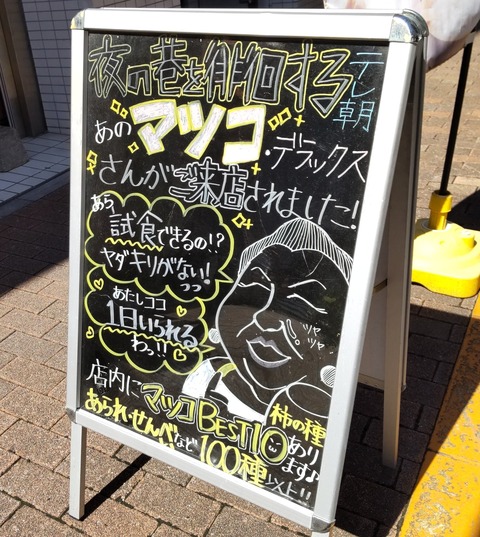 夜の巷を徘徊する
テレ朝
あの
マツコ・デラックス
さんがご来店されました!
あら
試食できるの!?
ヤダキリがない!
っっ
あたしココ
1日いられる
わっ!!
ツヤ
ツヤ
店内にマツコBEST10あり
ます♪
柿の種
あられ・せんべいなど100種以上!!